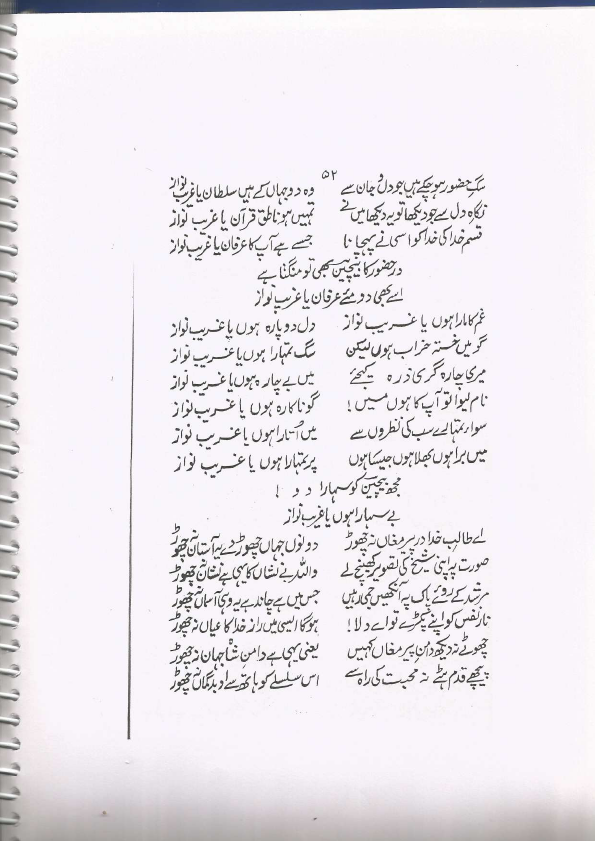 ۵۲
سگِ حضور ہو چکے ہیں جو دل و جان سے وہ دو جہاں کے ہیں سلطان یا غریب نواز
نگاہِ دل سے جو دیکھا تو یہ دیکھا میں نے تمہیں ہو ناطق قرآن یا غریب نواز
قسم خدا کی خدا کو اسی نے پہچانا جسے ہے آپ کا عرفان یا غریب نواز
درِ حضور کا بیچین بھی تو منگتا ہے
اسے بھی دو مئے عرفان یا غریب نواز
غم کا مارا ہوں یا غریب نواز دل دوپارہ ہوں یا غریب نواز
گو میں خستہ خراب ہوں لیکن سگ تمہارا ہوں یا غریب نواز
میری چارہ گری ذرہ کیجئے میں بے چارہ ہوں یا غریب نواز
نام لیوا تو آپ کا ہوں میں! گو ناکارہ ہوں یا غریب نواز
سوا تمہارے سب کی نظروں سے میں اُتارا ہوں یا غریب نواز
میں برا ہوں بھلا ہوں جیسا ہوں پر تمہارا ہوں یا غریب نواز
مجھ بیچین کو سہارا دو!
بے سہارا ہوں یا غریب نواز
اے طالبِ خدا درِ پیرِ مغاں نہ چھوڑ دونوں جہاں چھوڑ دے یہ آستاں نہ چھوڑ
صورت پہ اپنی شیخ کی تصویر کھینچ لے واللہ بے نشاں کا یہی ہے نشاں نہ چھوڑ
مرشد کے روئے پاک پہ آنکھیں جمی رہیں جس میں ہے چاند ہے یہ وہی آسماں نہ چھوڑ
نارِ نفس کو اپنے پکڑے تو اے دلا! ہوگا ایسی میں رازِ خدا کا عیاں نہ چھوڑ
چھوٹے نہ دیکھ دامنِ پیرِ مغاں کہیں یعنی یہی ہے دامنِ شاہِ جہاں نہ چھوڑ
پیچھے قدم ہٹے نہ محبت کی راہ سے اس سلسلے کو ہاتھ سے او بدگماں نہ چھوڑ